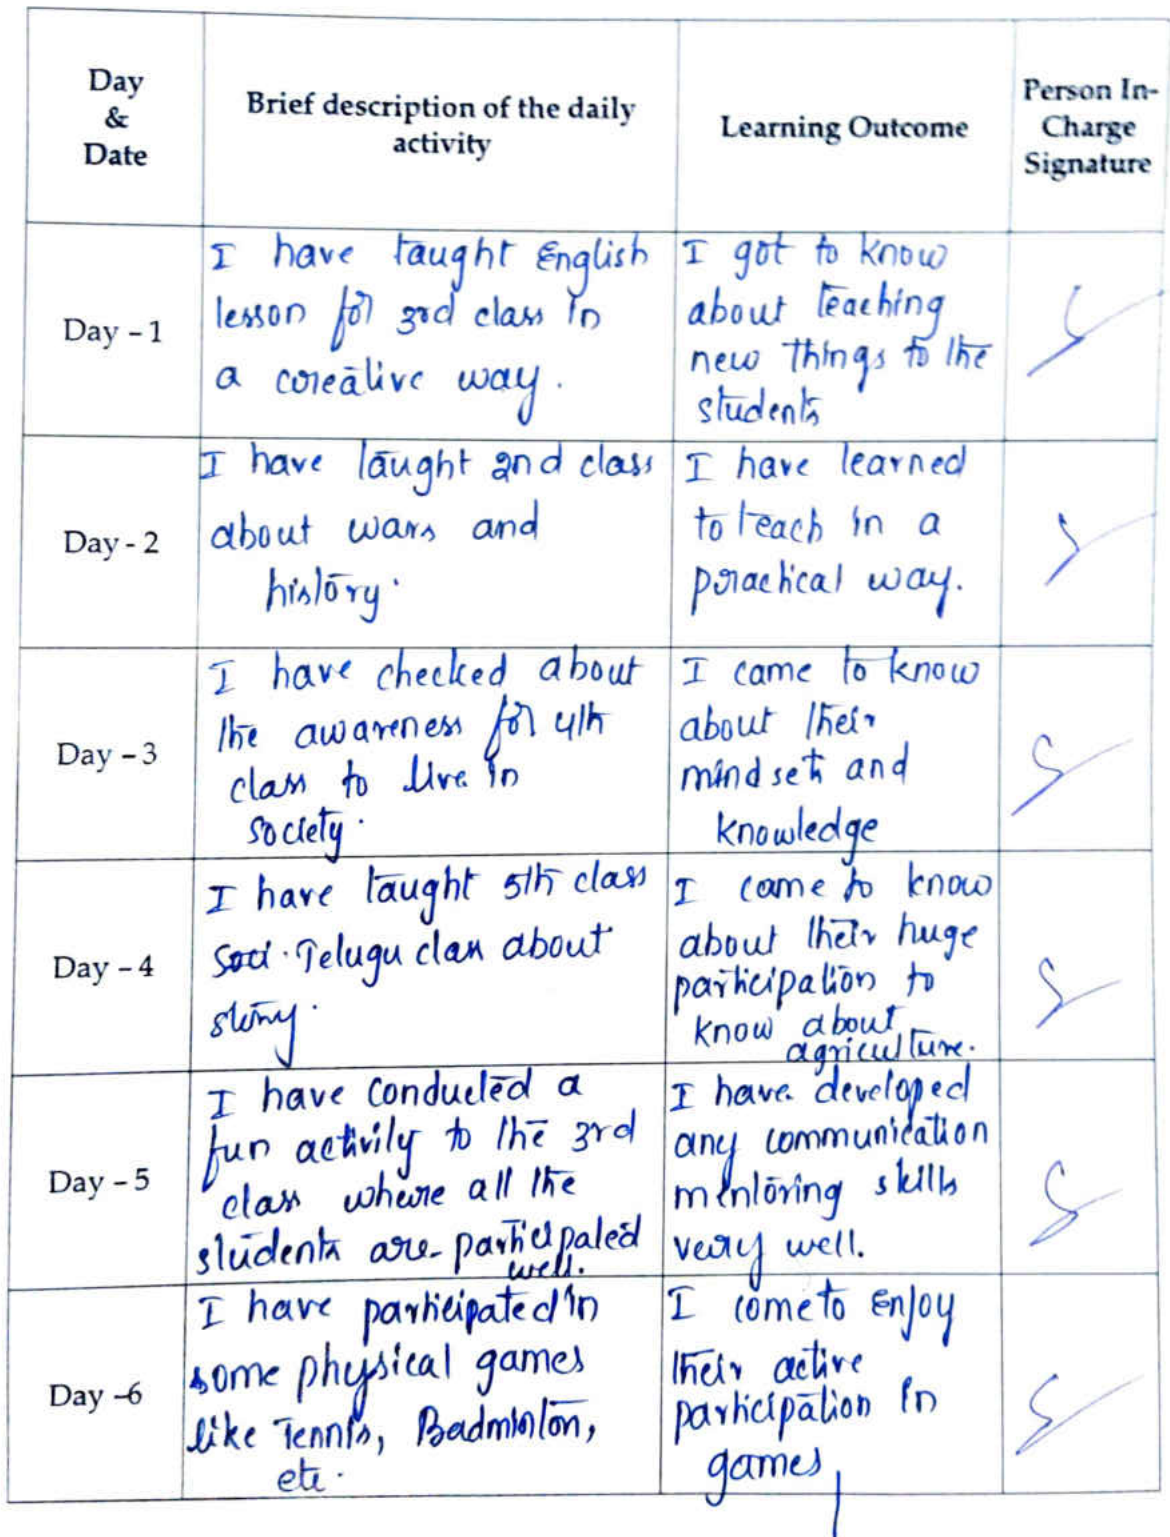 Day
&
Date
Brief description of the daily
activity
Learning Outcome
Person In-
Charge
Signature
Day - 1
I have taught English
lesson for 3rd class in
a creative way.
I got to know
about teaching
new things to the
students
Day - 2
I have taught 2nd class
about wars and
history.
I have learned
to teach in a
practical way.
Day - 3
I have checked about
the awareness for 4th
class to live in
society.
I came to know
about their
mindsets and
knowledge
Day - 4
I have taught 5th class
Telugu class about
story.
I came to know
about their huge
participation to
know about
agriculture.
Day - 5
I have conducted a
fun activity to the 3rd
class where all the
students are participated
well.
I have developed
any communication
mentoring skills
very well.
Day -6
I have participated in
some physical games
like Tennis, Badminton,
etc.
I come to enjoy
their active
participation in
games